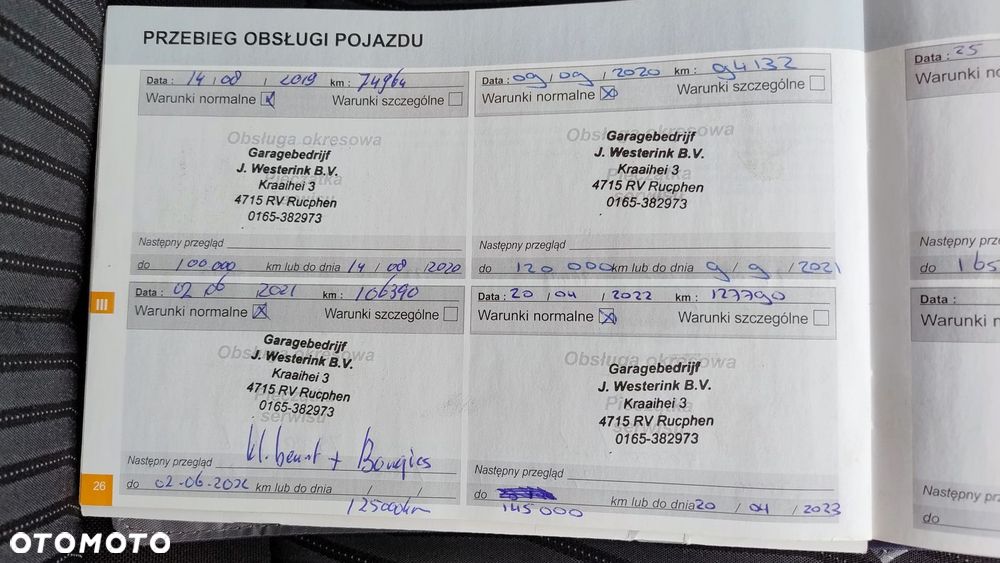 PRZEBIEG OBSŁUGI POJAZDU
Data : 14 / 08 / 2019 km : 74964
Warunki normalne Warunki szczególne
Obsługa okresowa
Garagebedrijf
J. Westerink B.V.
Kraaihei 3
4715 RV Rucphen
0165-382973
Następny przegląd
do 100.000 km lub do dnia 14 / 08 / 2020
Data : 09 / 09 / 2020 km : 94132
Warunki normalne Warunki szczególne
Obsługa okresowa
Garagebedrijf
J. Westerink B.V.
Kraaihei 3
4715 RV Rucphen
0165-382973
Następny przegląd
do 120 000 km lub do dnia 9 / 9 / 2021
III
Data : 02 06 2021 km : 106390
Warunki normalne Warunki szczególne
Obsługa okresowa
Garagebedrijf
J. Westerink B.V.
Kraaihei 3
4715 RV Rucphen
0165-382973
serwisu
+ Bougies
Następny przegląd
do 02-06-2022 km lub do dnia / /
125000km
Data : 20 / 04 / 2022 km : 127790
Warunki normalne Warunki szczególne
Obsługa okresowa
Garagebedrijf
J. Westerink B.V.
Kraaihei 3
4715 RV Rucphen
0165-382973
Następny przegląd
do km lub do dnia 20 / 04 / 2023
145000
26
Data : 25
Warunki
Następny
do 165
Data :
Warunki
Następny
do
OTOMOTO